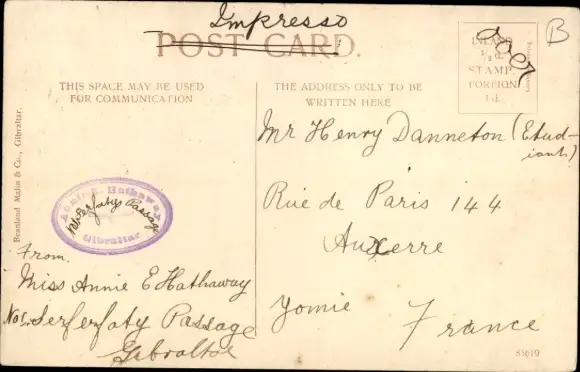 Impresso
POST CARD.
INLAND
½ d.
STAMP.
FOREIGN
1 d.
B
THIS SPACE MAY BE USED
FOR COMMUNICATION
THE ADDRESS ONLY TO BE
WRITTEN HERE
Beanland Malin & Co., Gibraltar.
Mr Henry Danneton (Etud-
iants)
Rue de Paris 144
Auxerre
Yomie France
Annie E. Hathaway
Serfaty Passage
Gibraltar
From.
Miss Annie E Hathaway
No 5. Serferfaty Passage
Gibraltar
83619